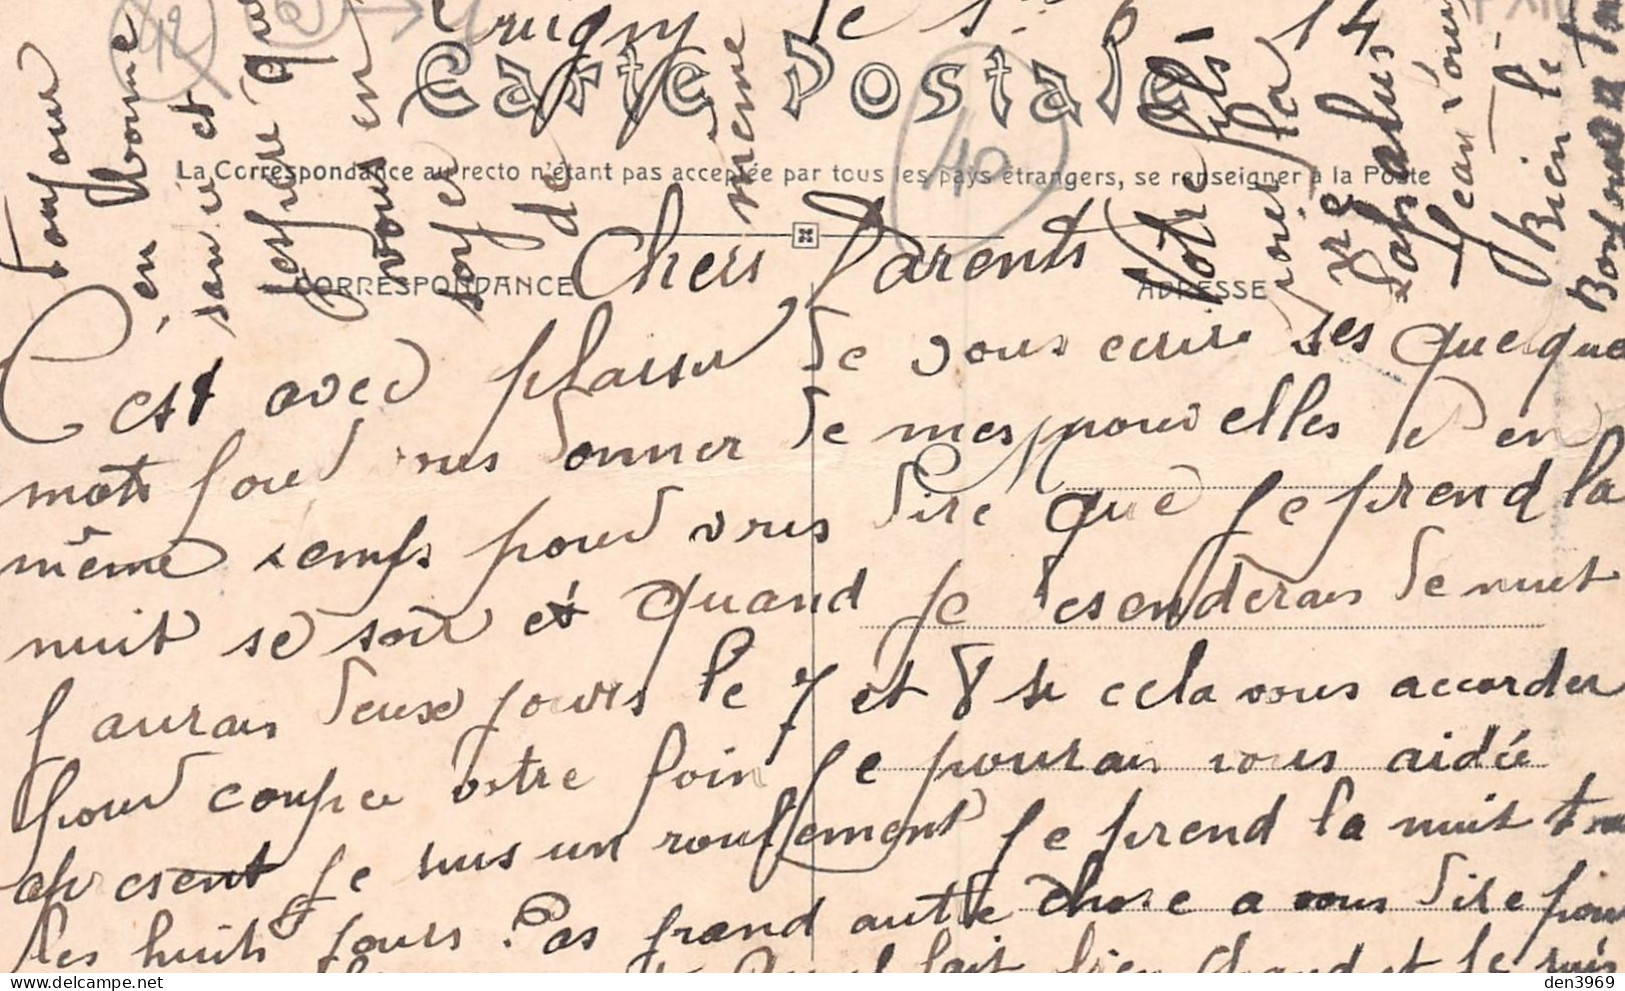 Grigny le 14
Carte Postale
La Correspondance au recto n'étant pas acceptée par tous les pays étrangers, se renseigner à la Poste
CORRESPONDANCE
ADRESSE
Chers Parents
C'est avec plaisir de vous ecrire ses quelque
mots pour vous donner de mes nouvelles et en
même temps pour vous dire que je prend la
nuit se soir et quand je desenderais de nuit
j aurais deux jours le 7 et 8 si cela vous accorder
pour coupee votre foin je pourais vous aidée
apresent je suis un roulement je prend la nuit tous
les huits jours. Pas grand autre chose a vous dire pour
fait bien chaud et je suis
toujour
en bonne
santé et
jespere que
vous en
soyer
de
même
Votre fils
pour la
vie
Jean Louis
Bien le
Bonjour a tous
42
40
den3969